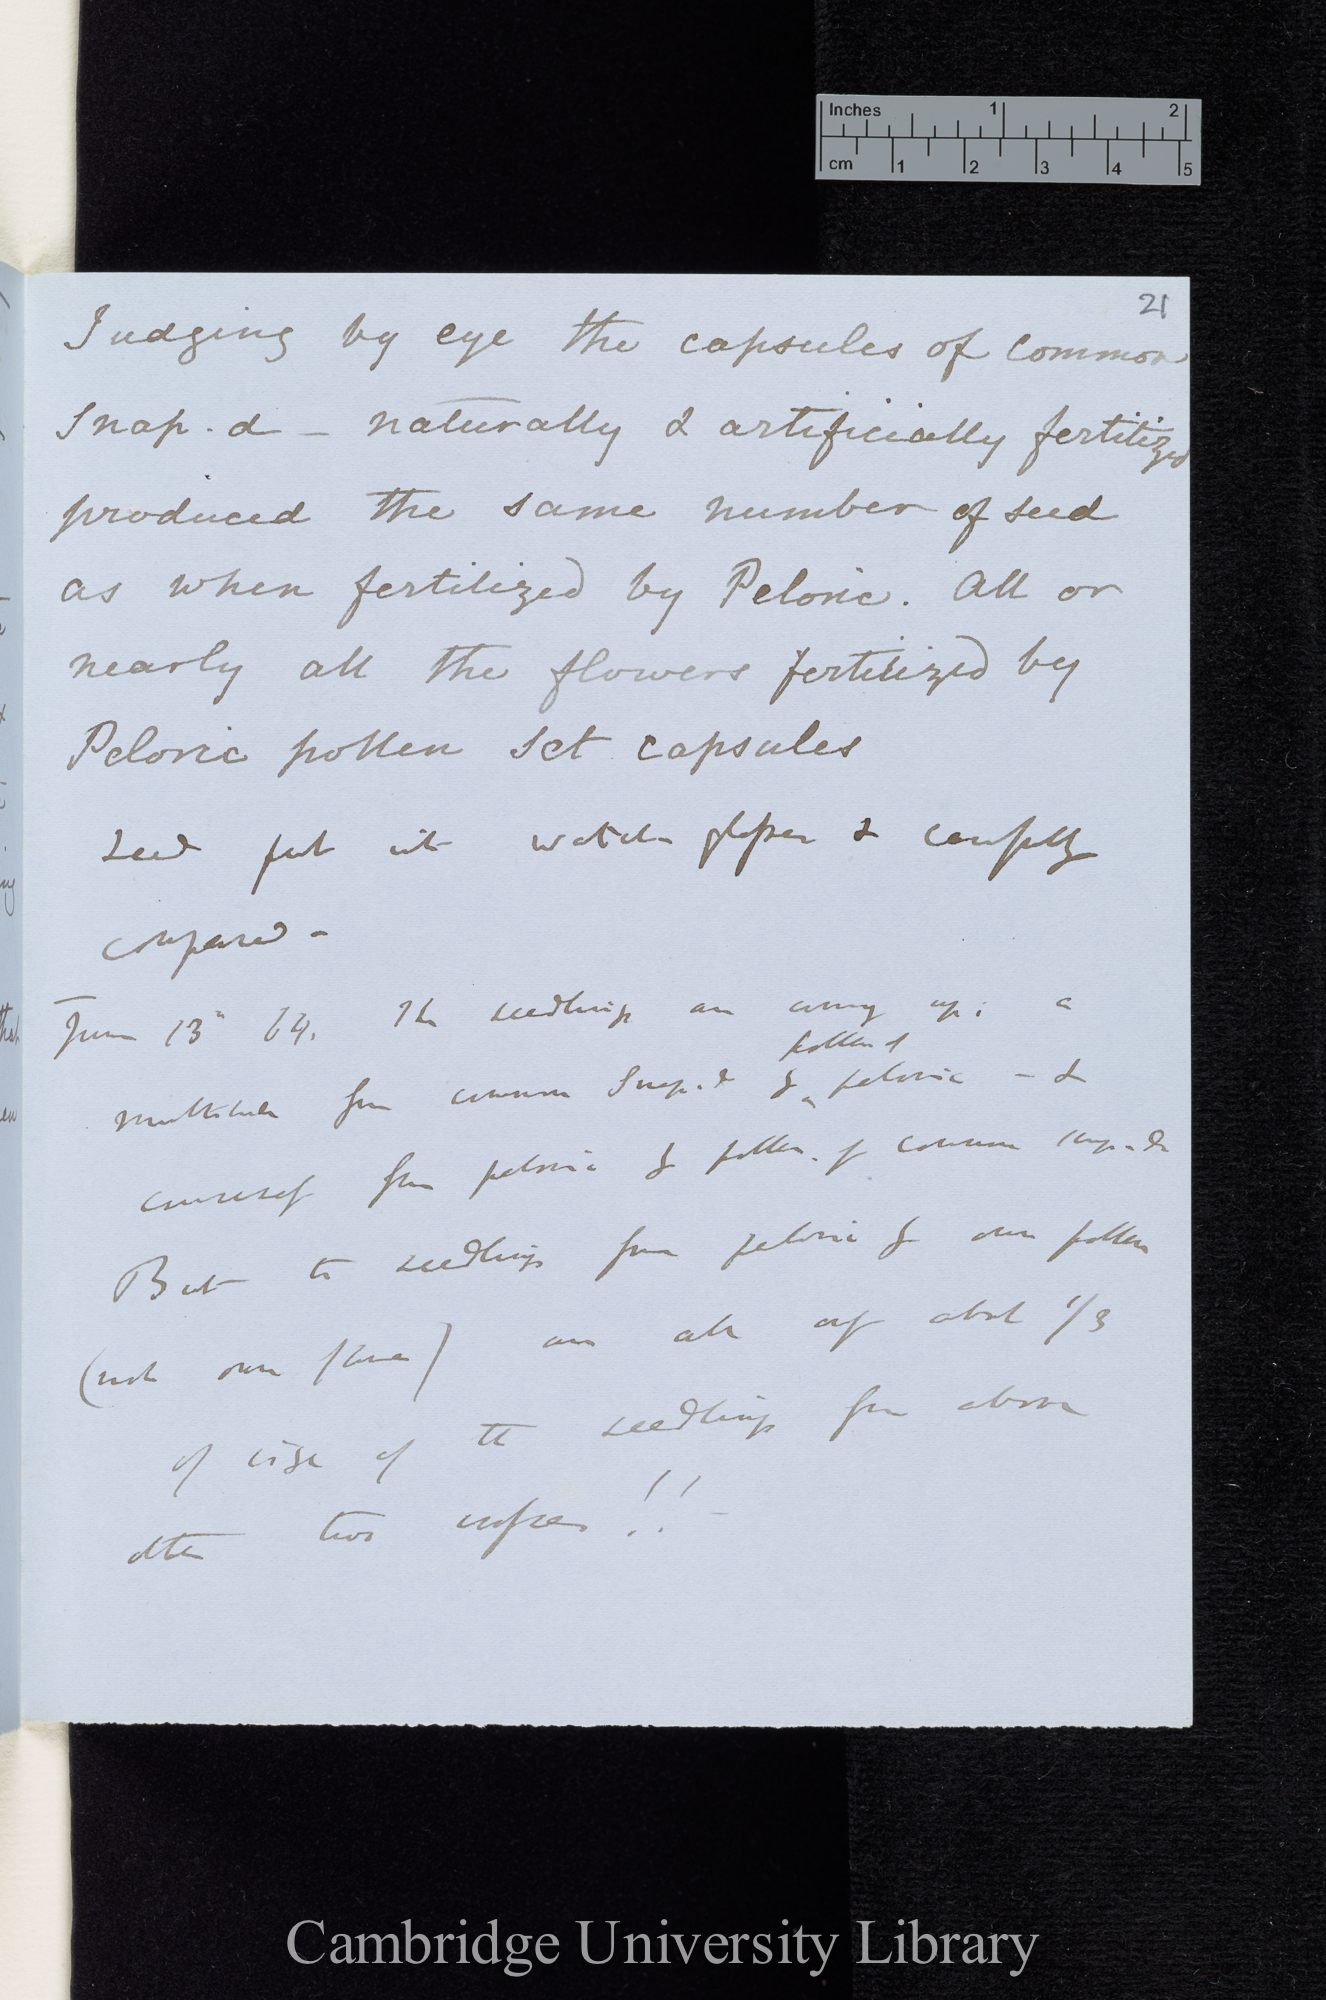 Inches 1 2
cm 1 2 3 4 5
21
Judging by eye the capsules of common
Snap. d — naturally & artificially fertilized
produced the same number of seed
as when fertilized by Peloric. All or
nearly all the flowers fertilized by
Peloric pollen set capsules
Seed put into watch glasses & carefully
compared —
June 13th 64. The seedlings are coming up; a
multitude from common Snap. d & pollen of peloric — &
conversely from peloric & pollen of common snap. d
But the seedlings from peloric & own pollen
(not own flower) are all only about 1/3
of size of the seedlings from above
other two crosses!! —
Cambridge University Library